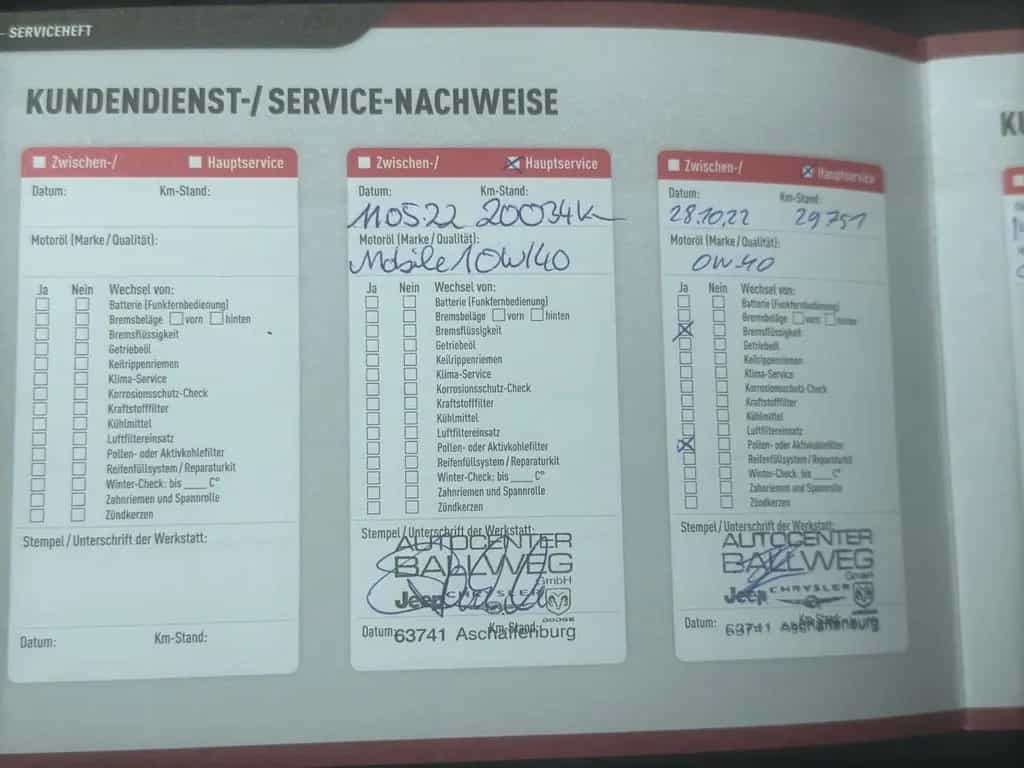 SERVICEHEFT
KUNDENDIENST-/ SERVICE-NACHWEISE
Zwischen-/ Hauptservice
Datum: Km-Stand:
Motoröl (Marke / Qualität):
Ja Nein Wechsel von:
Batterie (Funkfernbedienung)
Bremsbeläge vorn hinten
Bremsflüssigkeit
Getriebeöl
Keilrippenriemen
Klima-Service
Korrosionsschutz-Check
Kraftstofffilter
Kühlmittel
Luftfiltereinsatz
Pollen- oder Aktivkohlefilter
Reifenfüllsystem / Reparaturkit
Winter-Check: bis ____ C°
Zahnriemen und Spannrolle
Zündkerzen
Stempel / Unterschrift der Werkstatt:
Datum: Km-Stand:
Zwischen-/ Hauptservice
Datum: Km-Stand:
11.05.22 20034K
Motoröl (Marke / Qualität):
Mobile 1 0W40
Ja Nein Wechsel von:
Batterie (Funkfernbedienung)
Bremsbeläge vorn hinten
Bremsflüssigkeit
Getriebeöl
Keilrippenriemen
Klima-Service
Korrosionsschutz-Check
Kraftstofffilter
Kühlmittel
Luftfiltereinsatz
Pollen- oder Aktivkohlefilter
Reifenfüllsystem / Reparaturkit
Winter-Check: bis ____ C°
Zahnriemen und Spannrolle
Zündkerzen
Stempel / Unterschrift der Werkstatt:
AUTOCENTER
BALLWEG
GmbH
Jeep CHRYSLER
DODGE
Datum: Km-Stand:
63741 Aschaffenburg
Zwischen-/ Hauptservice
Datum: Km-Stand:
28.10.22 29751
Motoröl (Marke / Qualität):
0W-40
Ja Nein Wechsel von:
Batterie (Funkfernbedienung)
Bremsbeläge vorn hinten
Bremsflüssigkeit
Getriebeöl
Keilrippenriemen
Klima-Service
Korrosionsschutz-Check
Kraftstofffilter
Kühlmittel
Luftfiltereinsatz
Pollen- oder Aktivkohlefilter
Reifenfüllsystem / Reparaturkit
Winter-Check: bis ____ C°
Zahnriemen und Spannrolle
Zündkerzen
Stempel / Unterschrift der Werkstatt:
AUTOCENTER
BALLWEG
GmbH
Jeep CHRYSLER
Datum: Km-Stand:
63741 Aschaffenburg